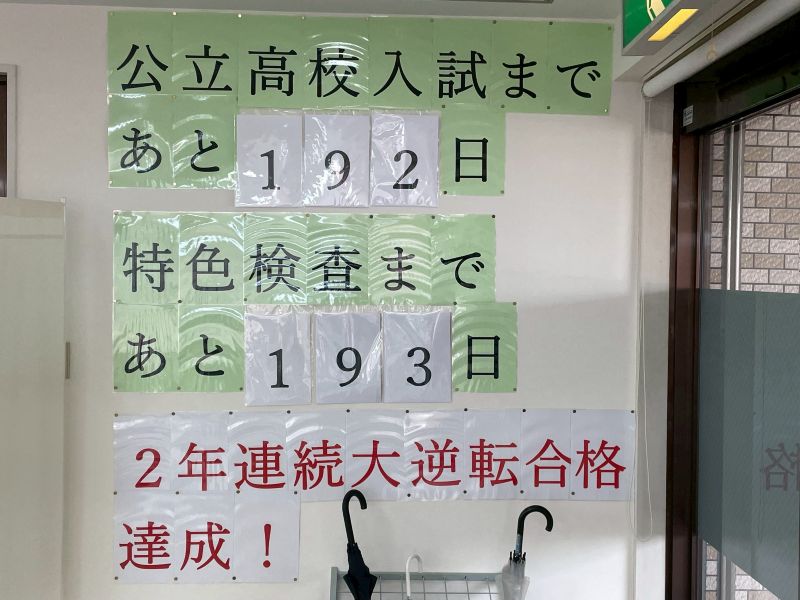 公立高校入試まで
あと192日
特色検査まで
あと193日
2年連続大逆転合格
達成！
格